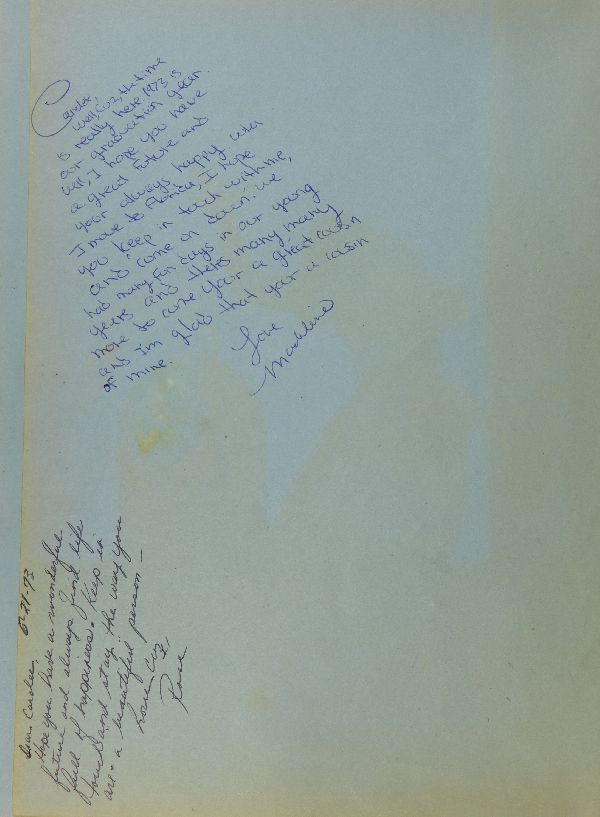 Carolee,
Well, cuz, the time
is really here 1973 is
our graduation year.
Well, I hope you have
a great future and
your always happy when
I move to Florida, I hope
you keep in touch with me,
and come on down. We
had many fun days in our young
years and theres many many
more to come your a great cousin
and I'm glad that your a cousin
of mine.
Love
Madeline
Dear Carolee, 6-21-73
Hope you have a wonderful
future and always find life
full of happiness. Keep in
touch and stay the way you
are - a beautiful person -
Love, Cuz